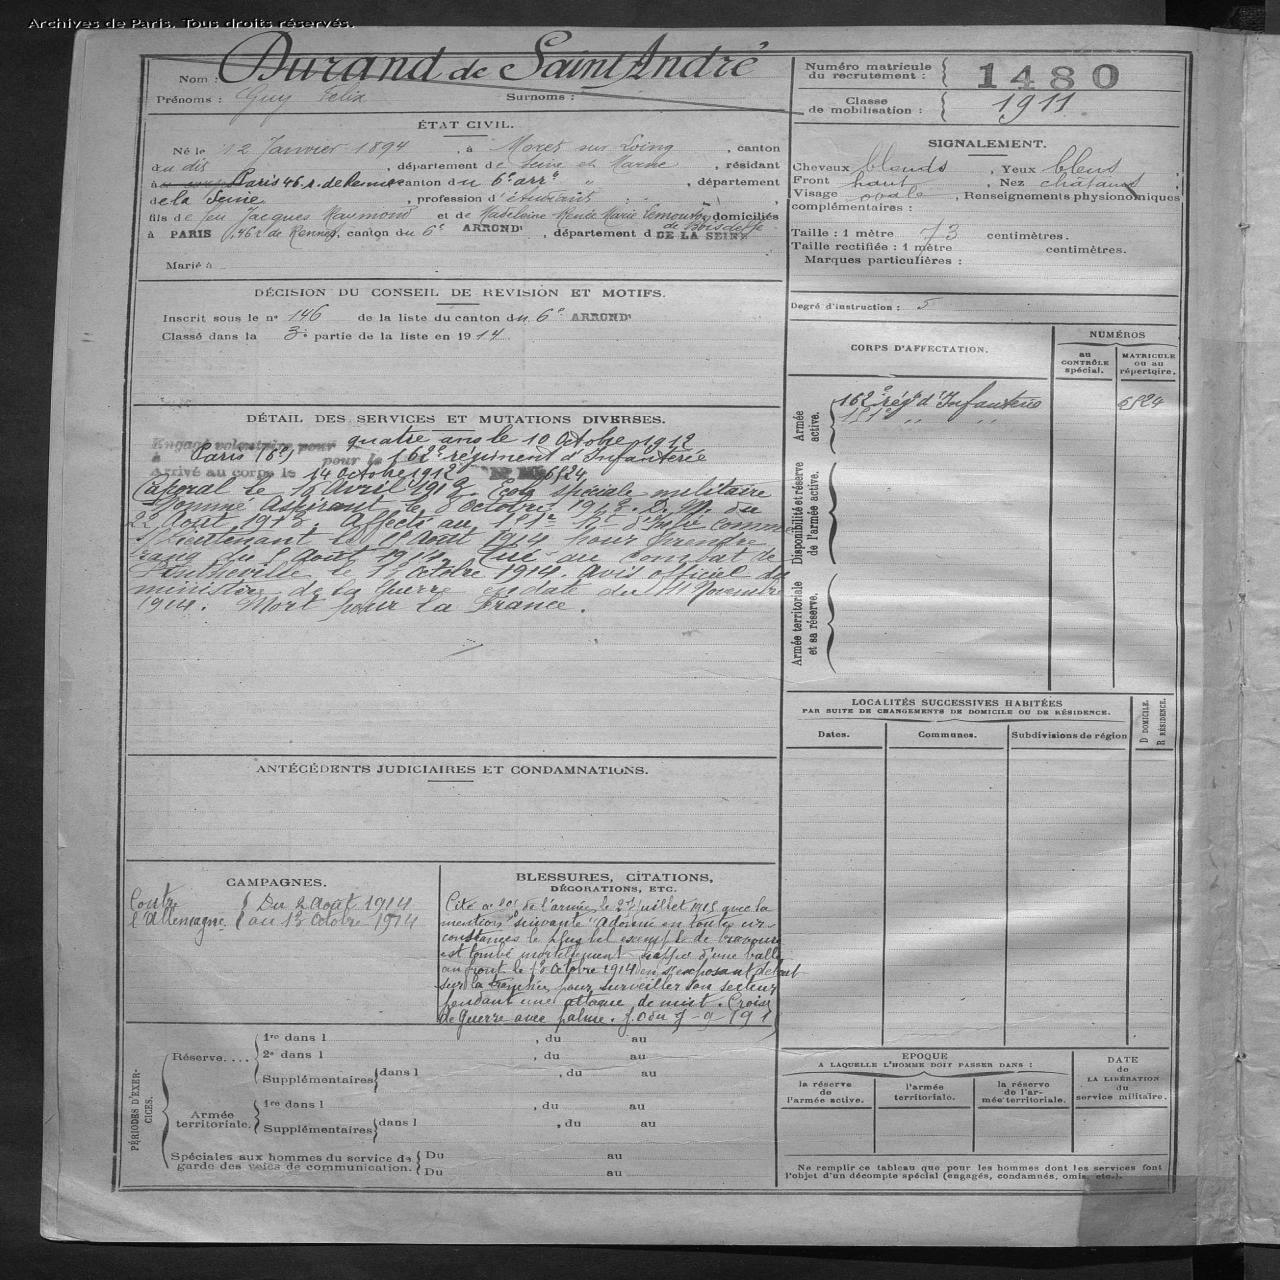 Archives de Paris. Tous droits réservés.
Nom : Durand de Saint André
Prénoms : Guy Felix Surnoms :
Numéro matricule
du recrutement : 1480
Classe
de mobilisation : 1911
ÉTAT CIVIL.
Né le 12 Janvier 1894, à Moret sur Loing, canton
du dis, département de Seine et Marne, résidant
à Paris 46 r. de Rennes canton du 6e arrt, département
de la Seine, profession d'étudiant
fils de feu Jacques Raymond et de Madeleine Renée Marie Lemouton domiciliés
de Boisdeffe
à PARIS 46 r. de Rennes, canton du 6e ARROND', département DE LA SEINE
Marié à
SIGNALEMENT.
Cheveux blonds, Yeux bleus
Front haut, Nez
Visage ovale, Renseignements physionomiques
complémentaires :
Taille : 1 mètre 73 centimètres.
Taille rectifiée : 1 mètre centimètres.
Marques particulières :
Degré d'instruction : 5
DÉCISION DU CONSEIL DE REVISION ET MOTIFS.
Inscrit sous le no 146 de la liste du canton du 6e ARROND'
Classé dans la 3e partie de la liste en 1914
DÉTAIL DES SERVICES ET MUTATIONS DIVERSES.
Engagé volontaire pour quatre ans le 10 Octobre 1912
à Paris (6e) pour le 162e régiment d'Infanterie
Arrivé au corps le 14 octobre 1912 6824
Caporal le 19 Avril 1913. Ecole spéciale militaire
Nommé Aspirant le 8 Octobre 1913. D. M. du
22 Août 1913. Affecté au 151e Rt d'Infie comme
S/Lieutenant le Août 1914 pour prendre
rang du 5 Août 1914. Tué au combat de
le 13 octobre 1914. Avis officiel du
ministère de la Guerre en date du 11 Novembre
1914. Mort pour la France.
CORPS D'AFFECTATION.
NUMÉROS
au
CONTRÔLE
spécial.
MATRICULE
ou au
répertoire.
Armée
active.
162e régt d'Infanterie 6824
151e " "
Disponibilité et réserve
de l'armée active.
Armée territoriale
et sa réserve.
LOCALITÉS SUCCESSIVES HABITÉES
PAR SUITE DE CHANGEMENTS DE DOMICILE OU DE RÉSIDENCE.
Dates. Communes. Subdivisions de région
D DOMICILE.
R RÉSIDENCE.
ANTÉCÉDENTS JUDICIAIRES ET CONDAMNATIONS.
CAMPAGNES.
Contre Du 2 Août 1914
l'Allemagne au 13 Octobre 1914
BLESSURES, CITATIONS,
DÉCORATIONS, ETC.
Cité à l'O. de l'armée le 27 juillet 1915 avec la
mention suivante "A donné en toutes cir-
constances le plus bel exemple de bravoure
est tombé mortellement frappé d'une balle
au front le 13 octobre 1914 en s'exposant debout
sur la tranchée pour surveiller son secteur
pendant une attaque de nuit. Croix
de Guerre avec palme. J.O du 7-9 191
PÉRIODES D'EXER-
CICES.
Réserve....
1re dans l , du au
2e dans l , du au
Supplémentaires dans l , du au
Armée
territoriale.
1re dans l , du au
Supplémentaires dans l , du au
Spéciales aux hommes du service de
garde des voies de communication.
Du au
Du au
EPOQUE
A LAQUELLE L'HOMME DOIT PASSER DANS :
la réserve
de
l'armée active.
l'armée
territoriale.
la réserve
de l'ar-
mée territoriale.
DATE
de
LA LIBÉRATION
du
service militaire.
Ne remplir ce tableau que pour les hommes dont les services font
l'objet d'un décompte spécial (engagés, condamnés, omis, etc.).